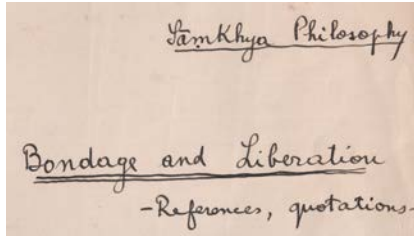 Sāṃkhya Philosophy
Bondage and Liberation
-References, quotations-